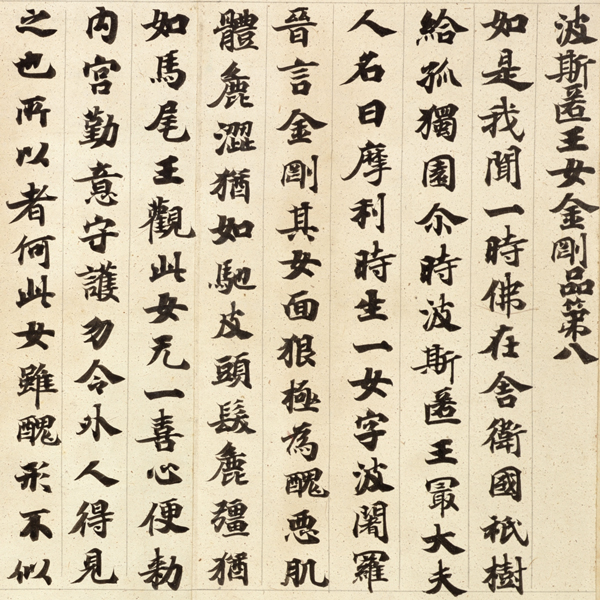 波斯匿王女金剛品第八
如是我聞一時佛在舍衛國祇樹
給孤獨園尒時波斯匿王冣大夫
人名曰摩利時生一女字波闍羅
晉言金剛其女面狠極為醜惡肌
體麁澀猶如馳皮頭髮麁彊猶
如馬尾王觀此女无一喜心便勑
內宮勤意守護勿令外人得見
之也所以者何此女雖醜形不似